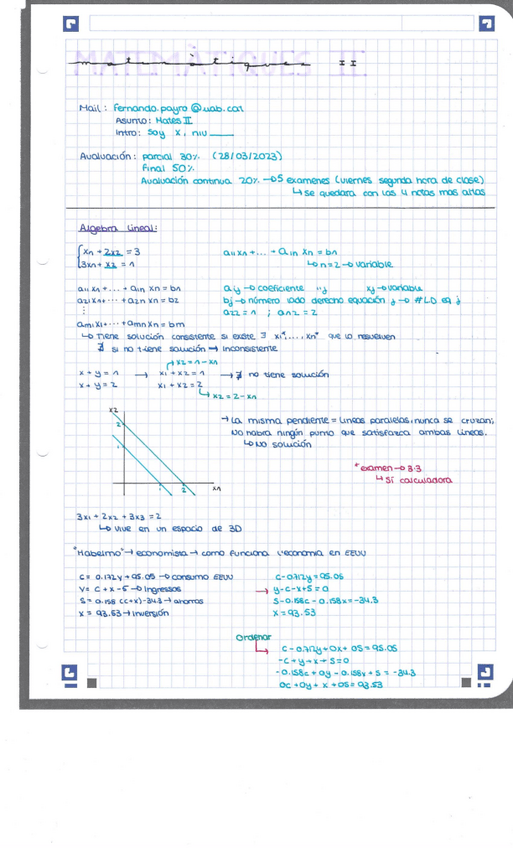 MATEMÀTIQUES II
matemàtiques II
Mail: Fernando.payro@uab.cat
Asumo: Mates II
Intro: Soy X, niu
Avaluación: parcial 30% (28/03/2023)
Final 50%
Avaluación continua 20% → 5 examenes (viernes segunda hora de clase)
↳ se quedara con las 4 notas mas altas
Algebra Lineal:
x1 + 2x2 = 3
3x1 + x2 = 1
a11x1 + ... + a1n xn = b1
↳ n=2 → variable
a11x1 + ... + a1n xn = b1
a21x1 + ... + a2n xn = b2
⋮
am1x1 + ... + amn xn = bm
aij → coeficiente "ij
xj → variable
bj → número lado derecho equación j → #LD eq j
a22 = 1 ; a12 = 2
↳ Tiene solución consistente si existe ∃ x1*, ..., xn* que lo resuelven
∄ si no tiene solución → inconsistente
x + y = 1 → x1 + x2 = 1 → ∄ no tiene solución
x2 = 1 - x1
x + y = 2 x1 + x2 = 2
↳ x2 = 2 - x1
x2
2
1
1 2 x1
→ La misma pendiente = lineas paralelas, nunca se cruzan;
No habra ningún punto que satisfazca ambas lineas.
↳ No solución
* examen → 3.3
↳ Sí calculadora
3x1 + 2x2 + 3x3 = 2
↳ vive en un espacio de 3D
"Habelmo" → economista → como funciona l'economia en EEUU
C = 0.712y + 95.05 → consumo EEUU
Y = C + X - S → ingressos
S = 0.158 (C+X) - 34.3 → ahorros
X = 93.53 → inversión
C - 0.712y = 95.05
→ y - C - X + S = 0
S - 0.158C - 0.158X = -34.3
X = 93.53
Ordenar
↳ C - 0.712y + 0X + 0S = 95.05
-C + y - X + S = 0
-0.158C + 0y - 0.158X + S = -34.3
0C + 0y + X + 0S = 93.53